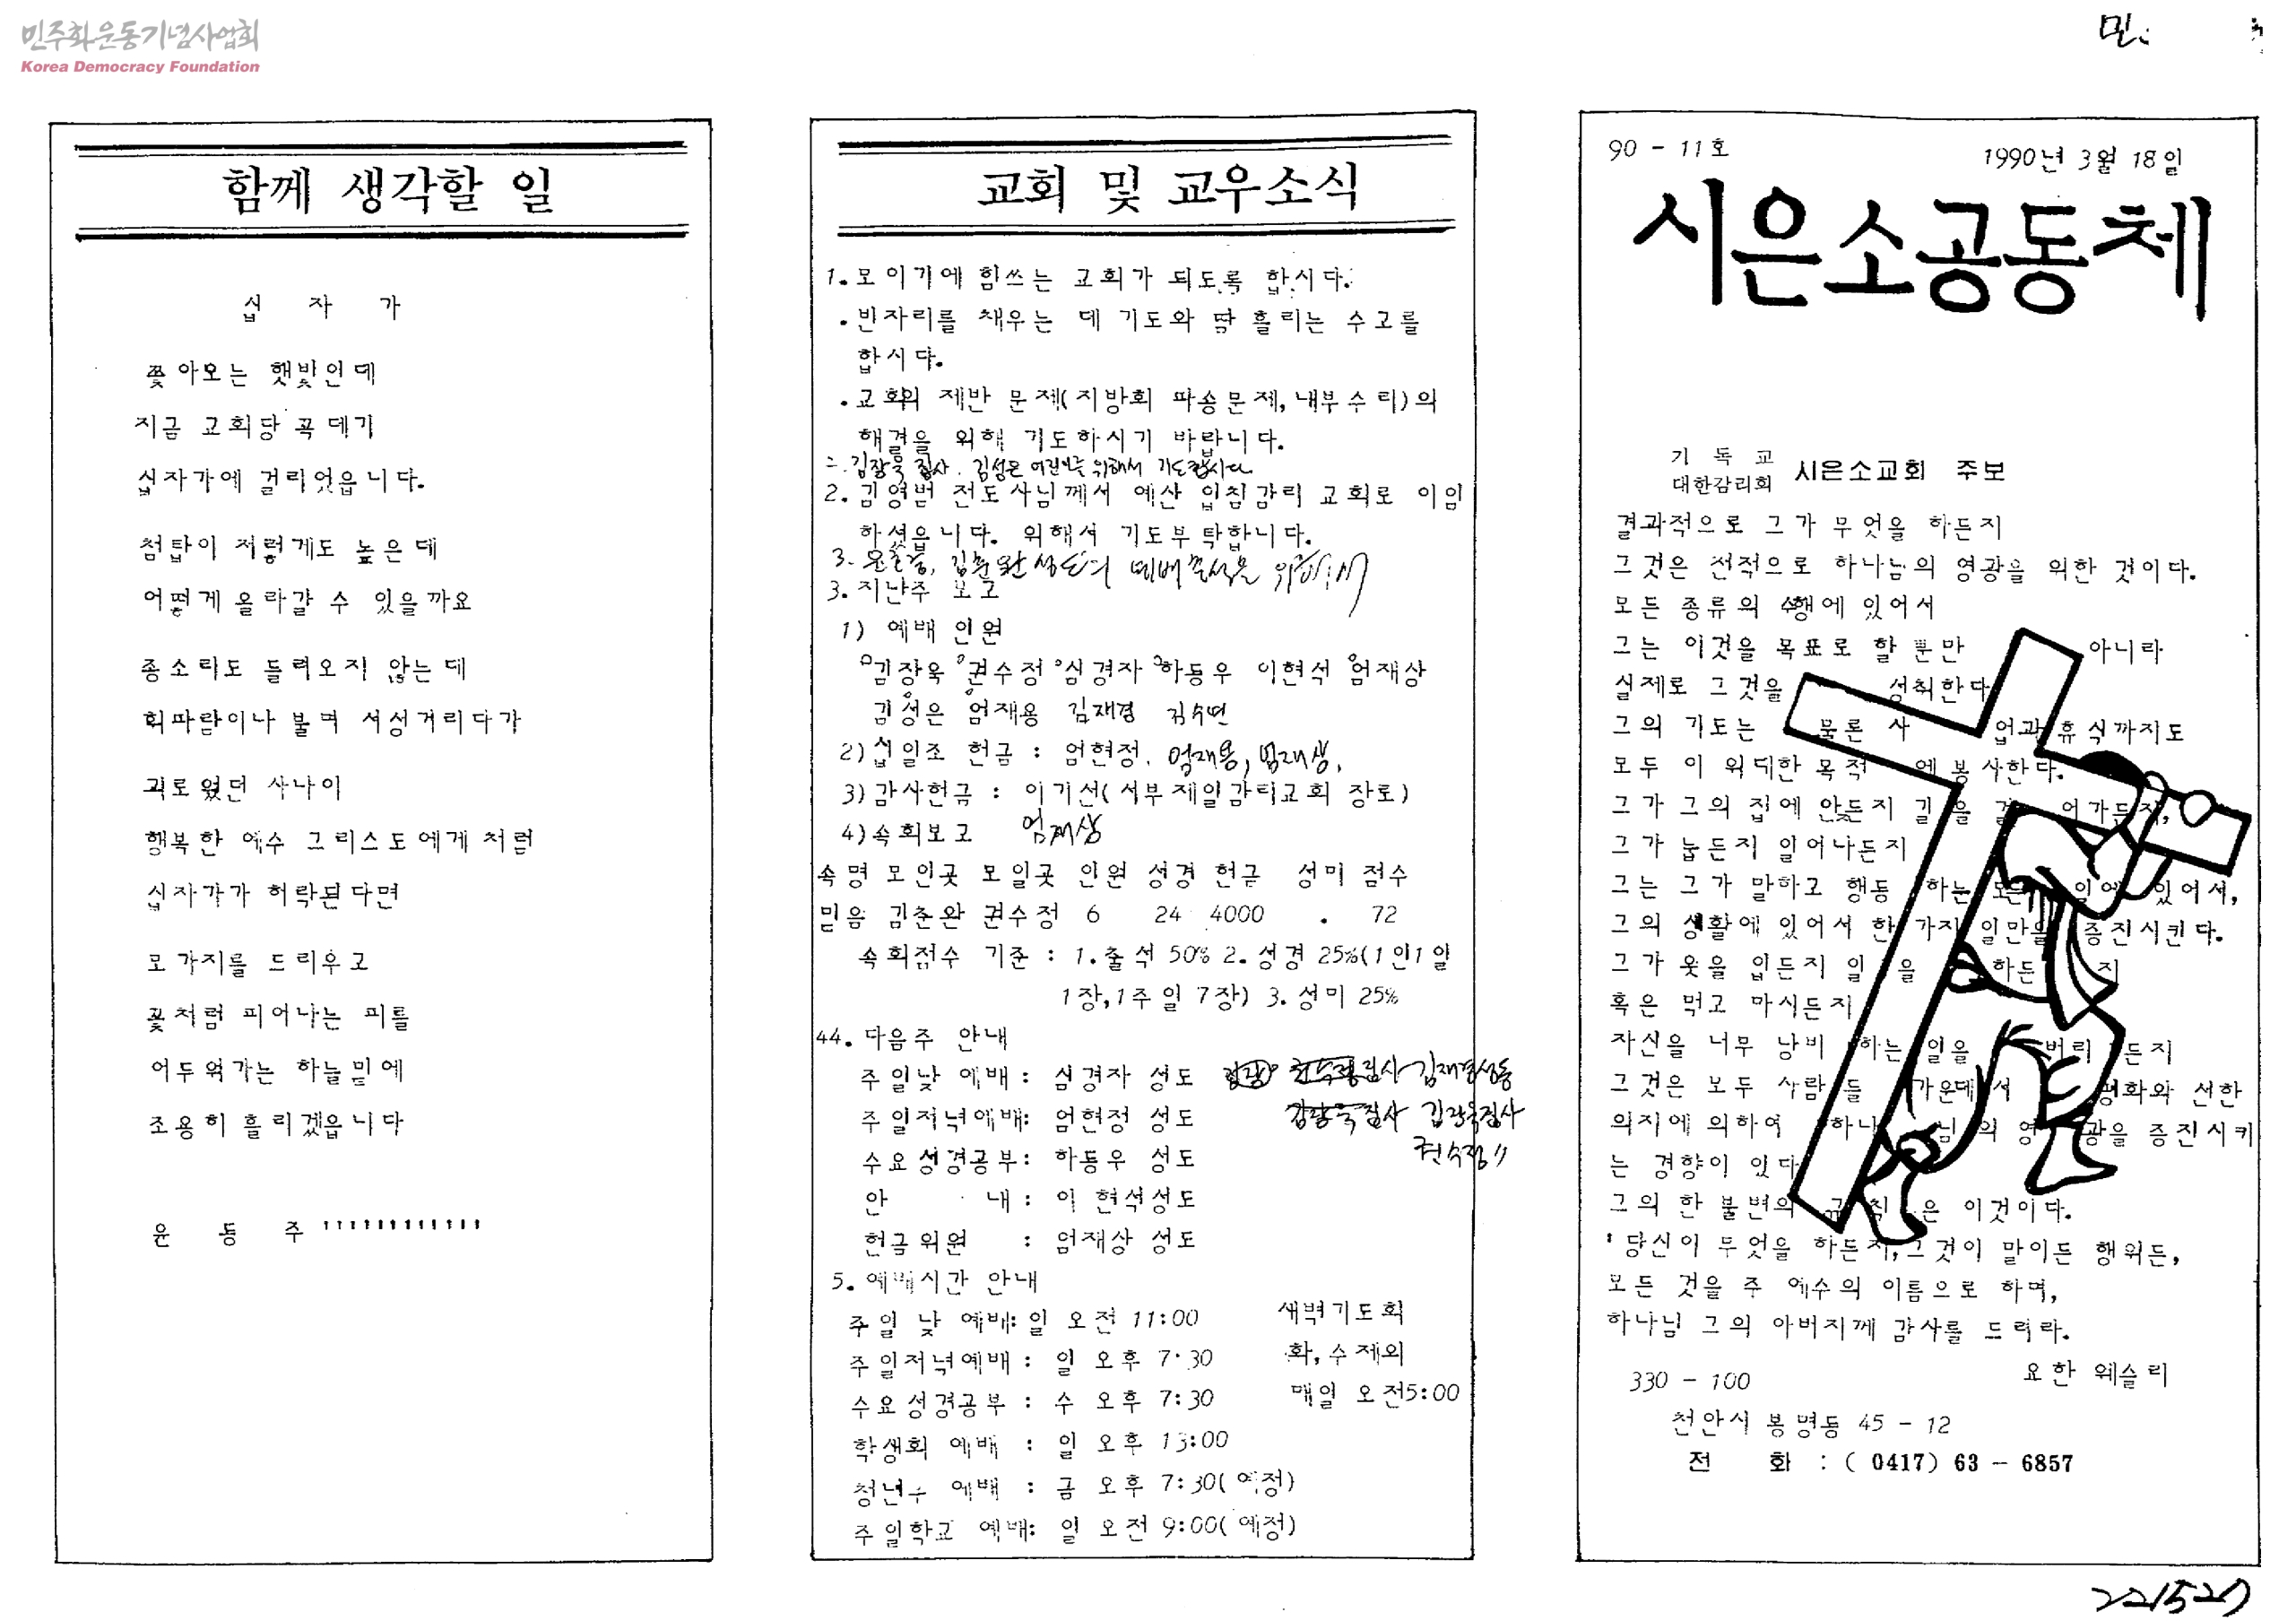 민주화운동기념사업회
Korea Democracy Foundation
함께 생각할 일
십 자 가
쫓아오는 햇빛인데
지금 교회당 꼭대기
십자가에 걸리었읍니다.
첨탑이 저렇게도 높은데
어떻게 올라갈 수 있을까요
종소리도 들려오지 않는데
휘파람이나 불며 서성거리다가
괴로웠던 사나이
행복한 예수 그리스도에게 처럼
십자가가 허락된다면
모가지를 드리우고
꽃처럼 피어나는 피를
어두워가는 하늘밑에
조용히 흘리겠읍니다
윤 동 주
교회 및 교우소식
1. 모이기에 힘쓰는 교회가 되도록 합시다.
. 빈자리를 채우는 데 기도와 땀 흘리는 수고를
합시다.
. 교회의 제반 문제(지방회 파송문제, 내부수리)의
해결을 위해 기도하시기 바랍니다.
김장욱 집사. 김성은 어린이를 위해서 기도합시다
2. 김영범 전도사님께서 예산 입침감리 교회로 이임
하셨읍니다. 위해서 기도부탁합니다.
3. 김춘완 성도의 예배 위해서
3. 지난주 보고
1) 예배 인원
김장욱 권수정 심경자 하동우 이현석 엄재상
김성은 엄재용 김재경 김수연
2) 십일조 헌금 : 엄현정. 엄재용, 엄재상.
3) 감사헌금 : 이기선(서부제일감리교회 장로)
4) 속회보고 엄재상
속명 모인곳 모일곳 인원 성경 헌금 성미 점수
믿음 김춘완 권수정 6 24 4000 . 72
속회점수 기준 : 1. 출석 50% 2. 성경 25%(1인1일
1장, 1주일 7장) 3. 성미 25%
44. 다음주 안내
주일낮 예배 : 심경자 성도 권수정집사 김재경성도
주일저녁예배: 엄현정 성도 김장욱집사 김장욱집사
수요성경공부: 하동우 성도 권수정〃
안 내 : 이 현석성도
헌금위원 : 엄재상 성도
5. 예배시간 안내
주일 낮 예배: 일 오전 11:00 새벽기도회
주일저녁예배 : 일 오후 7:30 화, 수 제외
수요성경공부 : 수 오후 7:30 매일 오전5:00
학생회 예배 : 일 오후 13:00
청년부 예배 : 금 오후 7:30(예정)
주일학교 예배: 일 오전 9:00(예정)
민.
90 - 11호 1990년 3월 18일
시은소공동체
기독교
대한감리회 시은소교회 주보
결과적으로 그가 무엇을 하든지
그것은 전적으로 하나님의 영광을 위한 것이다.
모든 종류의 수행에 있어서
그는 이것을 목표로 할 뿐만 아니라
실제로 그것을 성취한다
그의 기도는 물론 사업과 휴식까지도
모두 이 위대한 목적에 봉사한다.
그가 그의 집에 앉든지 길을 걸어가든지,
그가 눕든지 일어나든지
그는 그가 말하고 행동하는 모든 일에 있어서,
그의 생활에 있어서 한가지 일만을 증진시킨다.
그가 옷을 입든지 일을 하든지
혹은 먹고 마시든지
자신을 너무 낭비하는 일을 버리든지
그것은 모두 사람들 가운데서 평화와 선한
의지에 의하여 하나님의 영광을 증진시키
는 경향이 있다
그의 한 불변의 규칙은 이것이다.
' 당신이 무엇을 하든지, 그것이 말이든 행위든,
모든 것을 주 예수의 이름으로 하며,
하나님 그의 아버지께 감사를 드려라.
요한 웨슬리
330 - 100
천안시 봉명동 45 - 12
전 화 : ( 0417) 63 - 6857
221527